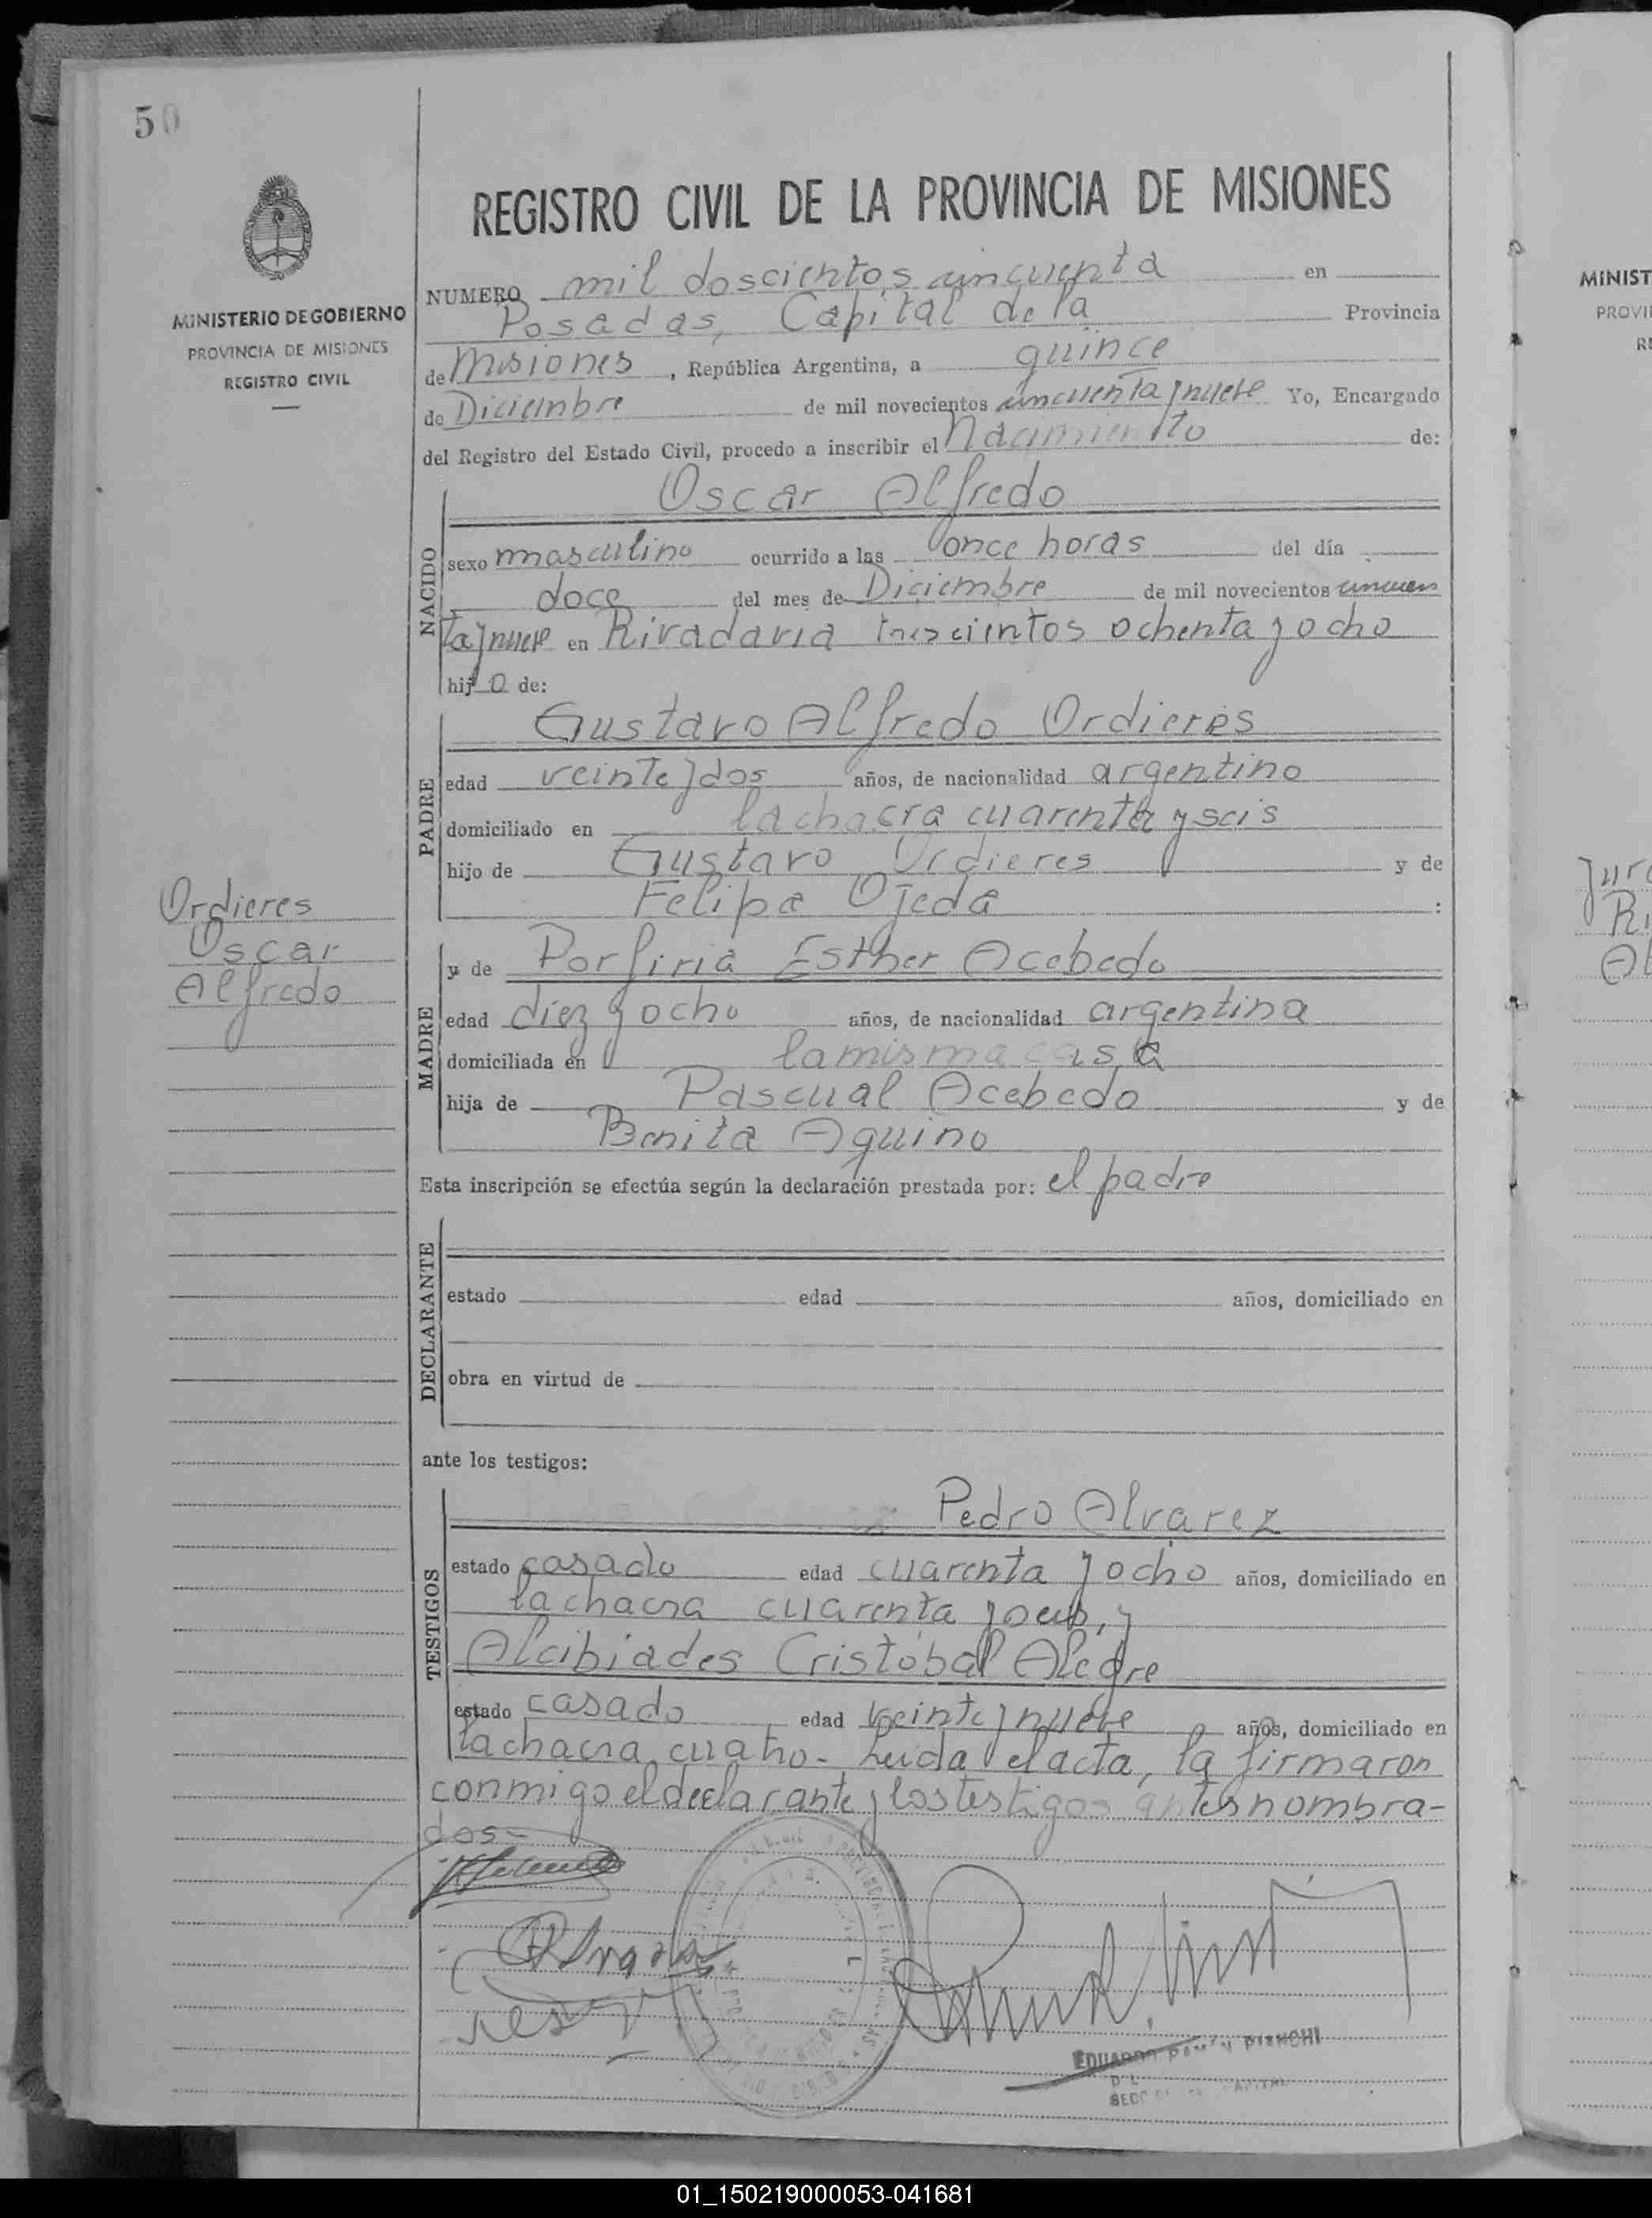 50
MINISTERIO DE GOBIERNO
PROVINCIA DE MISIONES
REGISTRO CIVIL
REGISTRO CIVIL DE LA PROVINCIA DE MISIONES
NUMERO mil doscientos cincuenta en
Posadas, Capital de la Provincia
de Misiones, República Argentina, a quince
de Diciembre de mil novecientos cincuenta y nueve Yo, Encargado
del Registro del Estado Civil, procedo a inscribir el Nacimiento de:
NACIDO
Oscar Alfredo
sexo masculino ocurrido a las once horas del día
doce del mes de Diciembre de mil novecientos cincuen
ta y nueve en Rivadavia trescientos ochenta y ocho
hijo de:
PADRE
Gustavo Alfredo Ordieres
edad veinte y dos años, de nacionalidad argentino
domiciliado en la chacra cuarenta y seis
hijo de Gustavo Ordieres y de
Felipa Ojeda :
Ordieres
Oscar
Alfredo
MADRE
y de Porfiria Esther Acebedo
edad diez y ocho años, de nacionalidad argentina
domiciliada en la misma casa
hija de Pascual Acebedo y de
Benita Aquino
Esta inscripción se efectúa según la declaración prestada por: el padre
DECLARANTE
estado edad años, domiciliado en
obra en virtud de
ante los testigos:
TESTIGOS
Pedro Alvarez
estado casado edad cuarenta y ocho años, domiciliado en
la chacra cuarenta y
Alcibiades Cristóbal Alegre
estado casado edad veinte y nueve años, domiciliado en
la chacra cuatro - Leida el acta, la firmaron
conmigo el declarante y los testigos antes nombra-
dos-
EDUARDO RAMON BIANCHI
MINIST
PROVI
RE
01_150219000053-041681